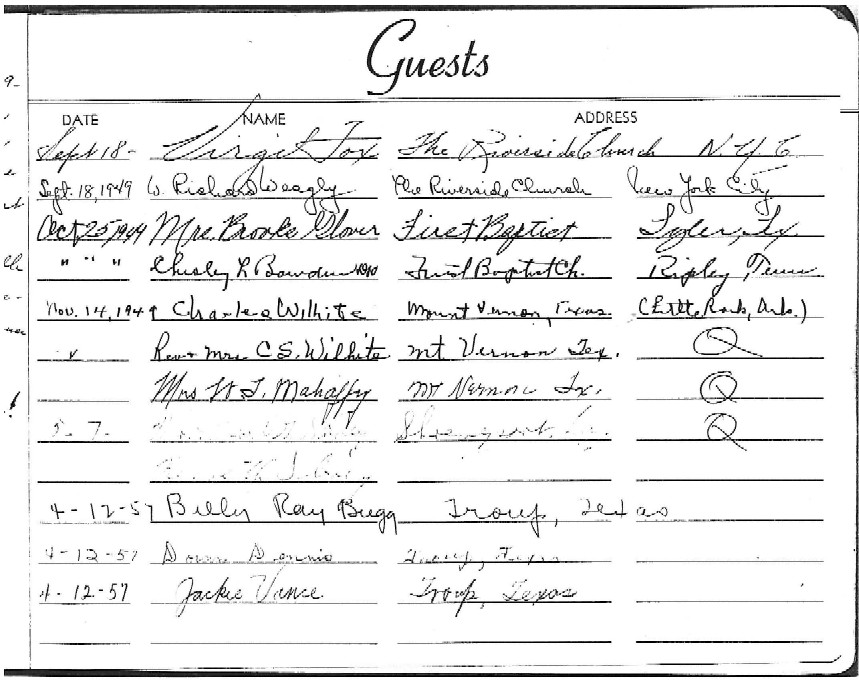 Guests
DATE NAME ADDRESS
Sept 18- Virgil Fox The Riverside Church N.Y.C
Sept. 18, 1949 W. Richard Weagly The Riverside Church New York City
Oct 25, 1949 Mrs. Brooks Glover First Baptist Tyler, Tx
" " " Chesley L. Bowden First Baptist Ch. Ripley, Tenn
Nov. 14, 1949 Charles Wilhite Mount Vernon, Texas. (Little Rock, Ark.)
Rev & Mrs C S. Wilhite Mt Vernon Tex.
Mrs W. T. Mahaffy Mt Vernon Tx.
5- 7-
4-12-57 Billy Ray Bugg Troup, Texas
4-12-57 Dennis Troup, Texas
4-12-57 Jackie Vance Troup, Texas